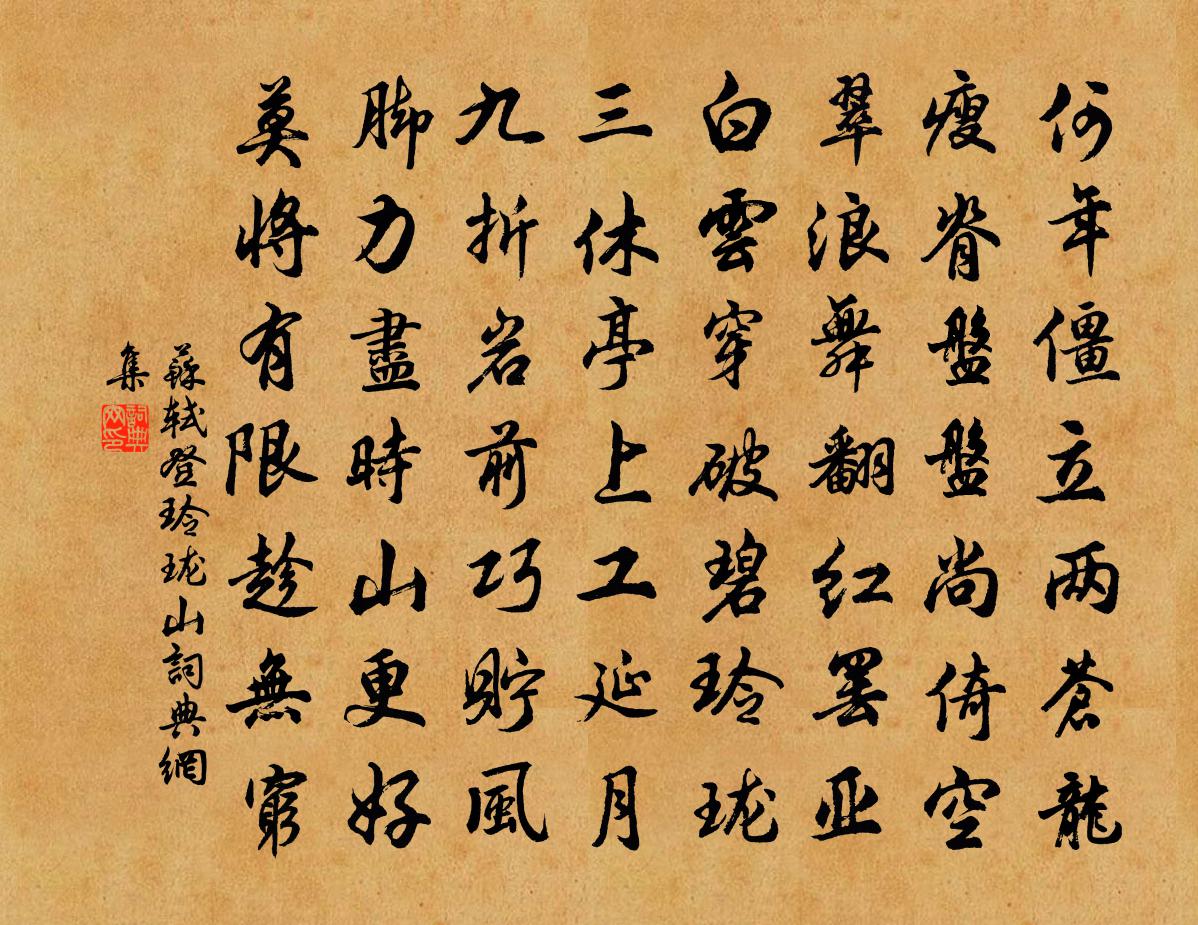 何年僵立两蒼龍
瘦脊盤盤尚倚空
翠浪舞翻红罢亚
白雲穿破碧玲珑
三休亭上工延月
九折岩前巧貯風
脚力盡時山更好
莫将有限趁無窮
蘇軾登玲珑山詞典網
集
詞典
网印